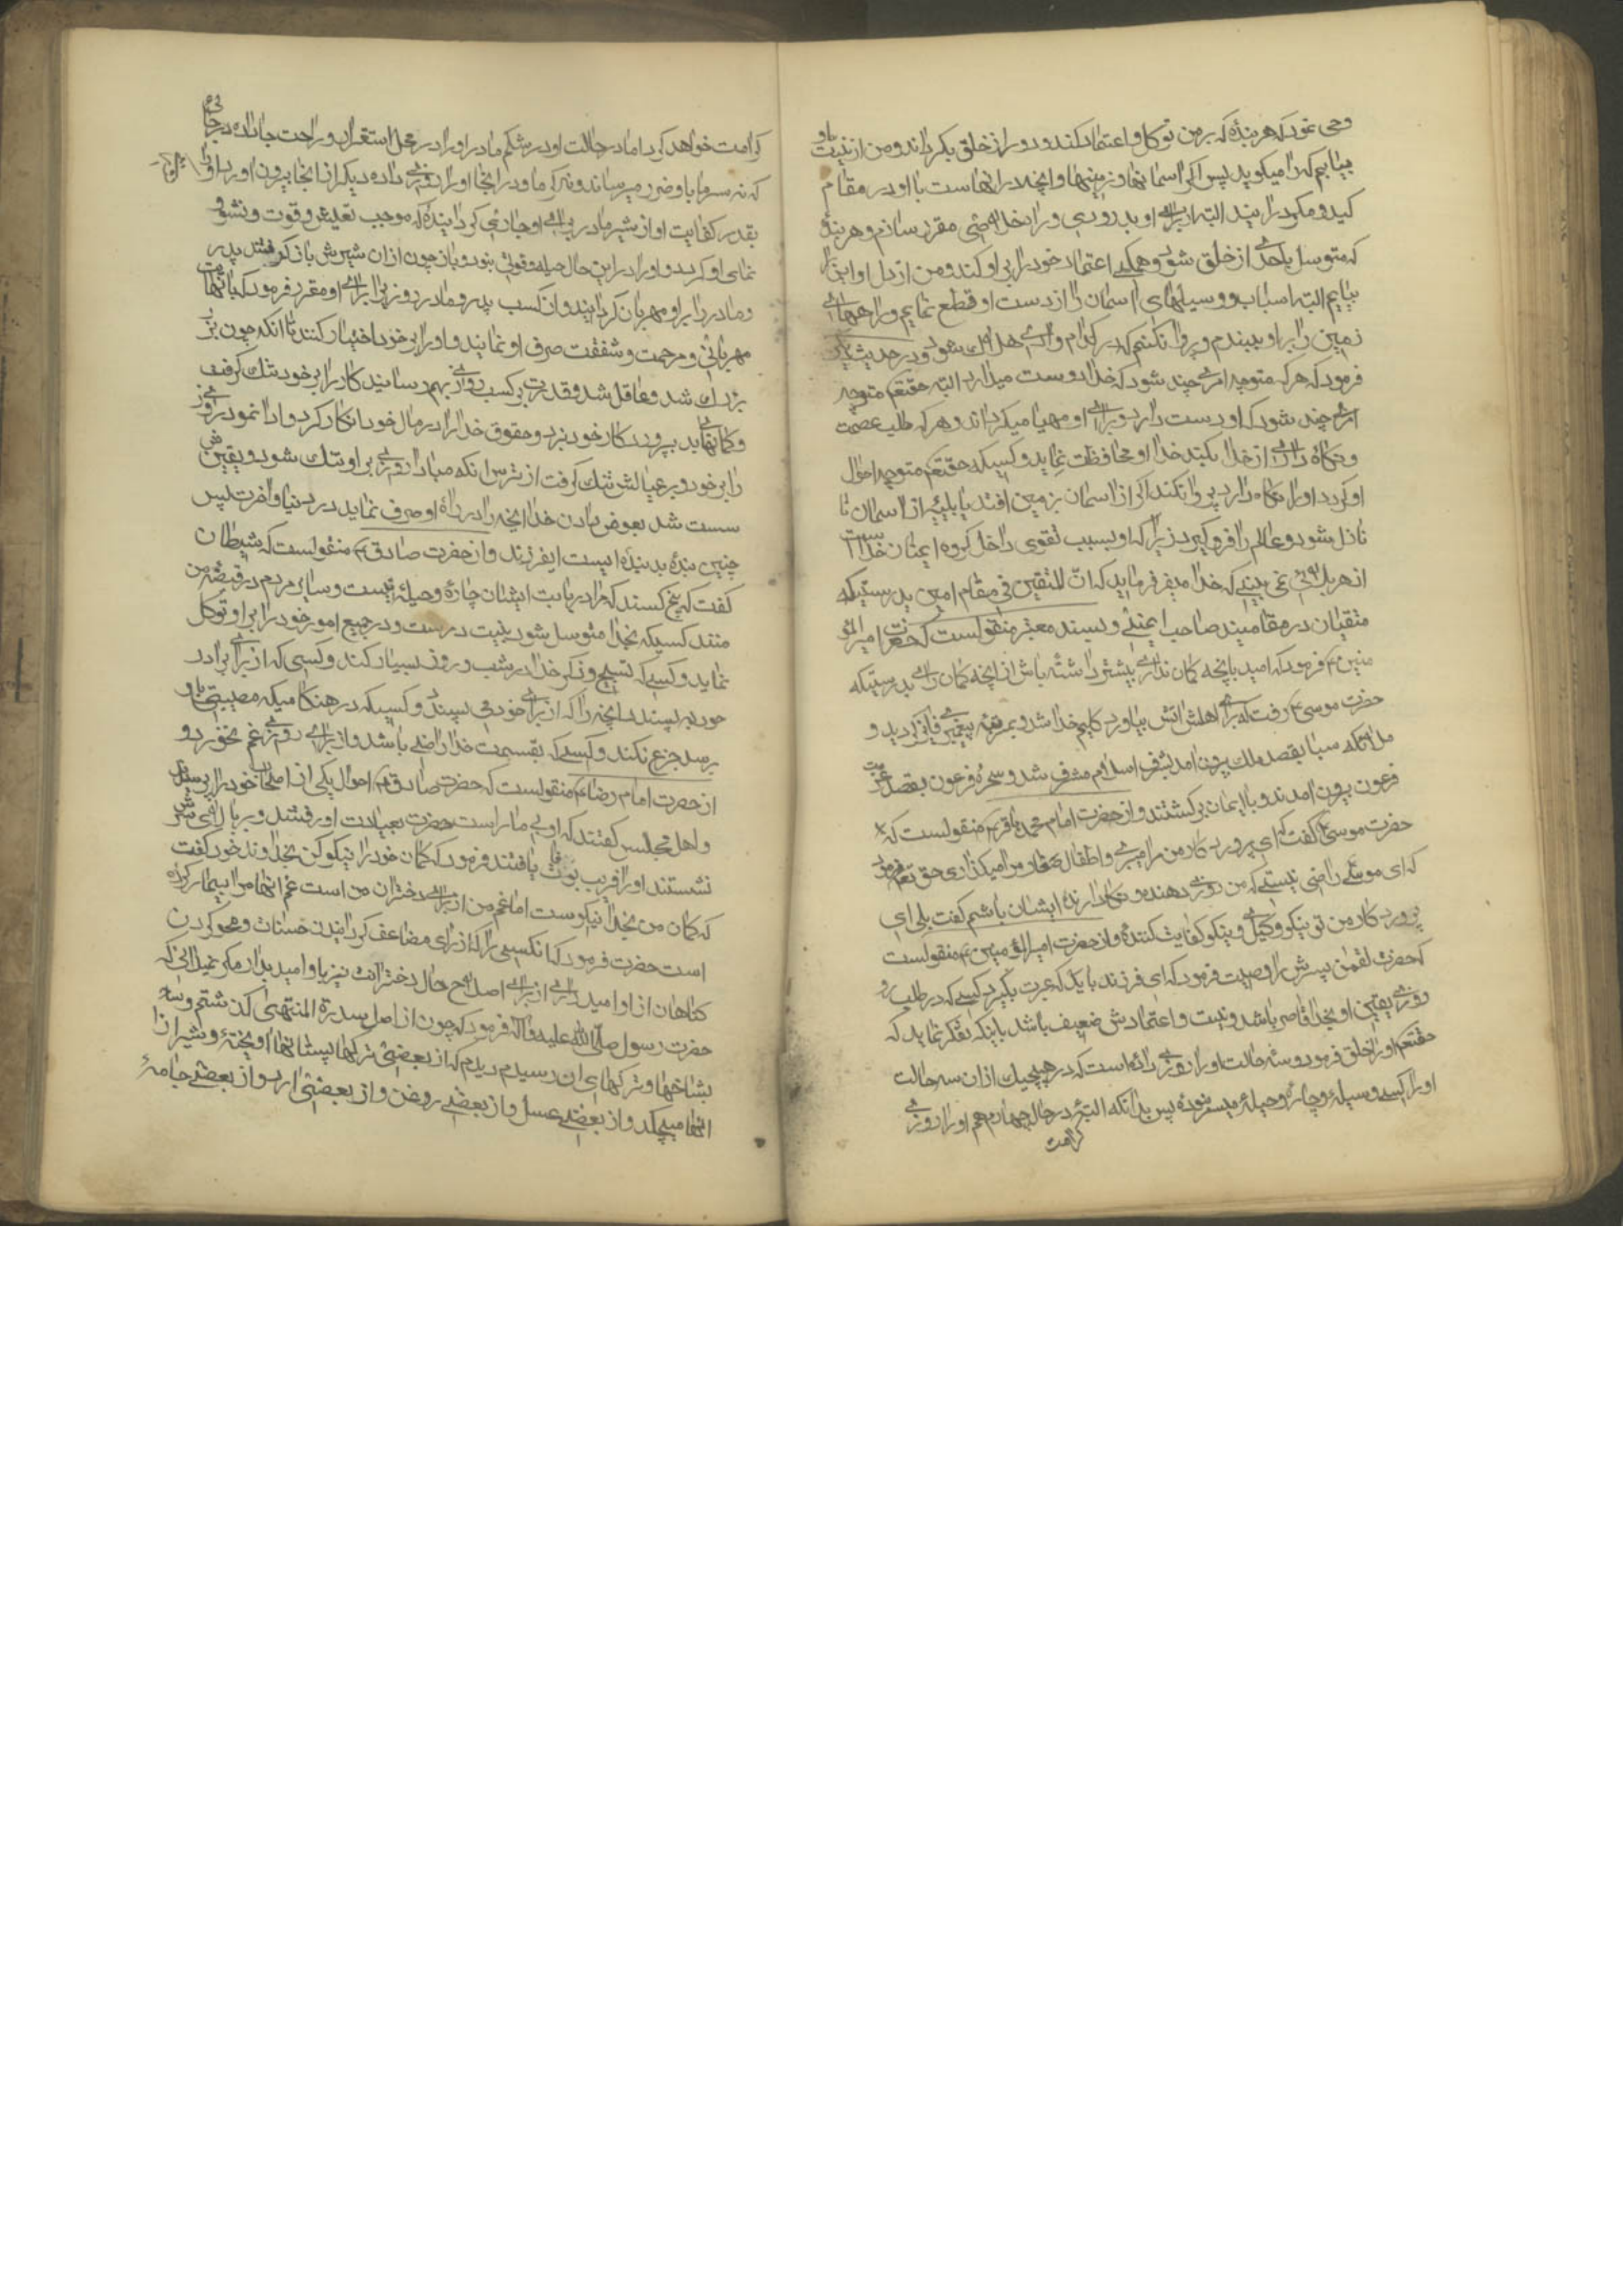 وحی نمود که هر بندهٔ که بر من توکل و اعتماد کند و رو از خلق بگرداند و من از نیت او
بیابم که راست میگوید پس اگر اسمانها و زمینها و انچه در انهاست با او در مقام
کید و مکر در ایند البته از برای او بدر روی و راه خلاصی مقرر سازم و هر بندهٔ
که متوسل باحدی از خلق شود و همگی اعتماد خود را بر او کند و من از دل او این را
بیابم البته اسباب و وسیلهای اسمان را از دست او قطع نمایم و راههای
زمین را بر او ببندم و پروا نکنم که در کدام وادی هلاک شود و در حدیث دیگر
فرمود که هر که متوجه امری چند شود که خدا دوست میدارد البته حقتعم متوجه
امری چند شود که او دوست دارد و برای او مهیا میگرداند و هر که طلب عصمت
و نگاه داری از خدا بکند خدا او محافظت نماید و کسیکه حقتعم متوجه احوال
او گردد و او را نگاه دارد پروا نکند اگر از اسمان بزمین افتد یا بلیهٔ از اسمان
نازل شود و عالم را فرو گیرد زیرا که او بسبب تقوی داخل گروه ایمنان خداست
از هر بلائی نمی بینی که خدا میفرماید که ان المتقین فی مقام امین بدرستیکه
متقیان در مقامیند صاحب ایمنی و بسند معتبر منقولست که حضرت امیر المؤ
منین ع فرمود که امید بانچه گمان نداری بیشتر داشته باش از انچه گمان داری بدرستیکه
حضرت موسی ع رفت که برای اهلش اتش بیاورد کلیم خدا شد و بمرتبه پیغمبری فایز گردید و
ملکه سبا بقصد ملک بیرون امد بشرف اسلام مشرف شد و سحرهٔ فرعون بقصد عزت
فرعون بیرون امدند و با ایمان برگشتند و از حضرت امام محمد باقر ع منقولست که
حضرت موسی ع گفت که ای پروردگار من مرا میبری و اطفال صغار مرا میگذاری حق تعم فرمود
که ای موسی راضی نیستی که من روزی دهنده و نگاه دارندهٔ ایشان باشم گفت بلی ای
پروردگار من تو نیکو وکیلی و نیکو کفایت کنندهٔ و از حضرت امیر المؤمنین ع منقولست
که حضرت لقمن پسرش را وصیت فرمود که ای فرزند باید که عبرت بگیرد کسی که در طلب رو
روزی یقین او بخدا قاصر باشد و نیت و اعتمادش ضعیف باشد باینکه تفکر نماید که
حقتعم او را خلق فرمود و سه حالت او را روزی داده است که در هیچیک از ان سه حالت
او را کسب و وسیلهٔ و چارهٔ و حیلهٔ میسر نبوده پس بداند که البته در حال چهارم هم او را روزی
کرامت
کرامت خواهد کرد اما در حالت اول در شکم مادر او را در محل استقرار و راحت جا داده در جائی
که نه سرما باو ضرر میرساند و نه گرما و در انجا او را روزی داده دیگر از انجا بیرون اورد و او را
بقدر کفایت او از شیر مادر برای او جاری گردانیده که موجب تعیش و قوت و نشو و
نمای او گردد و او را در این حال حیله و قوتی نبود و باز چون از ان شیرش باز گرفتند پدر
و مادر را بر او مهربان گردانید و از کسب پدر و مادر روزی برای او مقرر فرمود که با نهایت
مهربانی و مرحمت و شفقت صرف او نمایند و او را بر خود اختیار کنند تا انکه چون بزر
بزرک شد و عاقل شد و قدرت بر کسب روزی بهم رسانید کار را بر خود تنک گرفت
و گمانهای بد بپروردگار خود برد و حقوق خدا را در مال خود انکار کرد و ادا ننمود و روزی
را بر خود و بر عیالش تنک گرفت از ترس انکه مبادا روزی بر او تنک شود و یقینش
سست شد بعوض دادن خدا انچه را در راه او صرف نماید در دنیا و اخرت پس
چنین بندهٔ بد بندهٔ ایست ایفرزند و از حضرت صادق ع منقولست که شیطان
گفت که پنج کسند که مرا در باب ایشان چارهٔ و حیلهٔ نیست و سایر مردم در قبضه من
منند کسیکه بخدا متوسل شود بنیت درست و در جمیع امور خود را بر او توکل
نماید و کسی که تسبیح و ذکر خدا در شب و روز بسیار کند و کسی که از برای برادر
خود بپسندد انچه را که از برای خود می پسندد و کسیکه در هنگامیکه مصیبتی باو
برسد جزع نکند و کسی که بقسمت خدا راضی باشد و از برای روزی غم نخورد و
از حضرت امام رضا ع منقولست که حضرت صادق ع احوال یکی از اصحاب خود را پرسید
و اهل مجلس گفتند که او بیمار است حضرت بعیادت او رفتند و بر بالای سرش
نشستند و او را قریب بوفات یافتند فرمود که گمان خود را نیکو کن بخداوند خود گفت
که گمان من بخدا نیکوست اما غم من از برای دختران من است غم انها مرا بیمار کرده
است حضرت فرمود که انکسی را که از برای مضاعف گردانیدن حسنات و محو کردن
گناهان از او امید داری از برای اصلاح حال دخترانت نیز باو امید بدار مگر نمیدانی که
حضرت رسول صلی الله علیه و آله فرمود که چون از اصل سدرة المنتهی گذشتم و
بشاخها و ترکهای ان رسیدم دیدم که از بعضی ترکها پستانها اویخته و شیر از
انها میچکد و از بعضی عسل و از بعضی روغن و از بعضی ارد و از بعضی جامهٔ